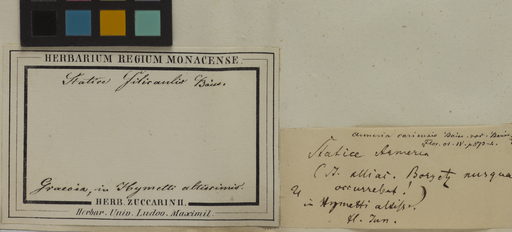 HERBARIUM REGIUM MONACENSE.
Statice filicaulis Boiss.
Graecia, in Hymetti altissimis.
HERB. ZUCCARINII.
Herbar. Univ. Ludov. Maximil.
Armeria Boiss. var.
Flor. or. IV. p.
Statice Armeria
(St. alliac. nusqua
occurrebat!)
in Hymetti altiss.
fl. Jun.